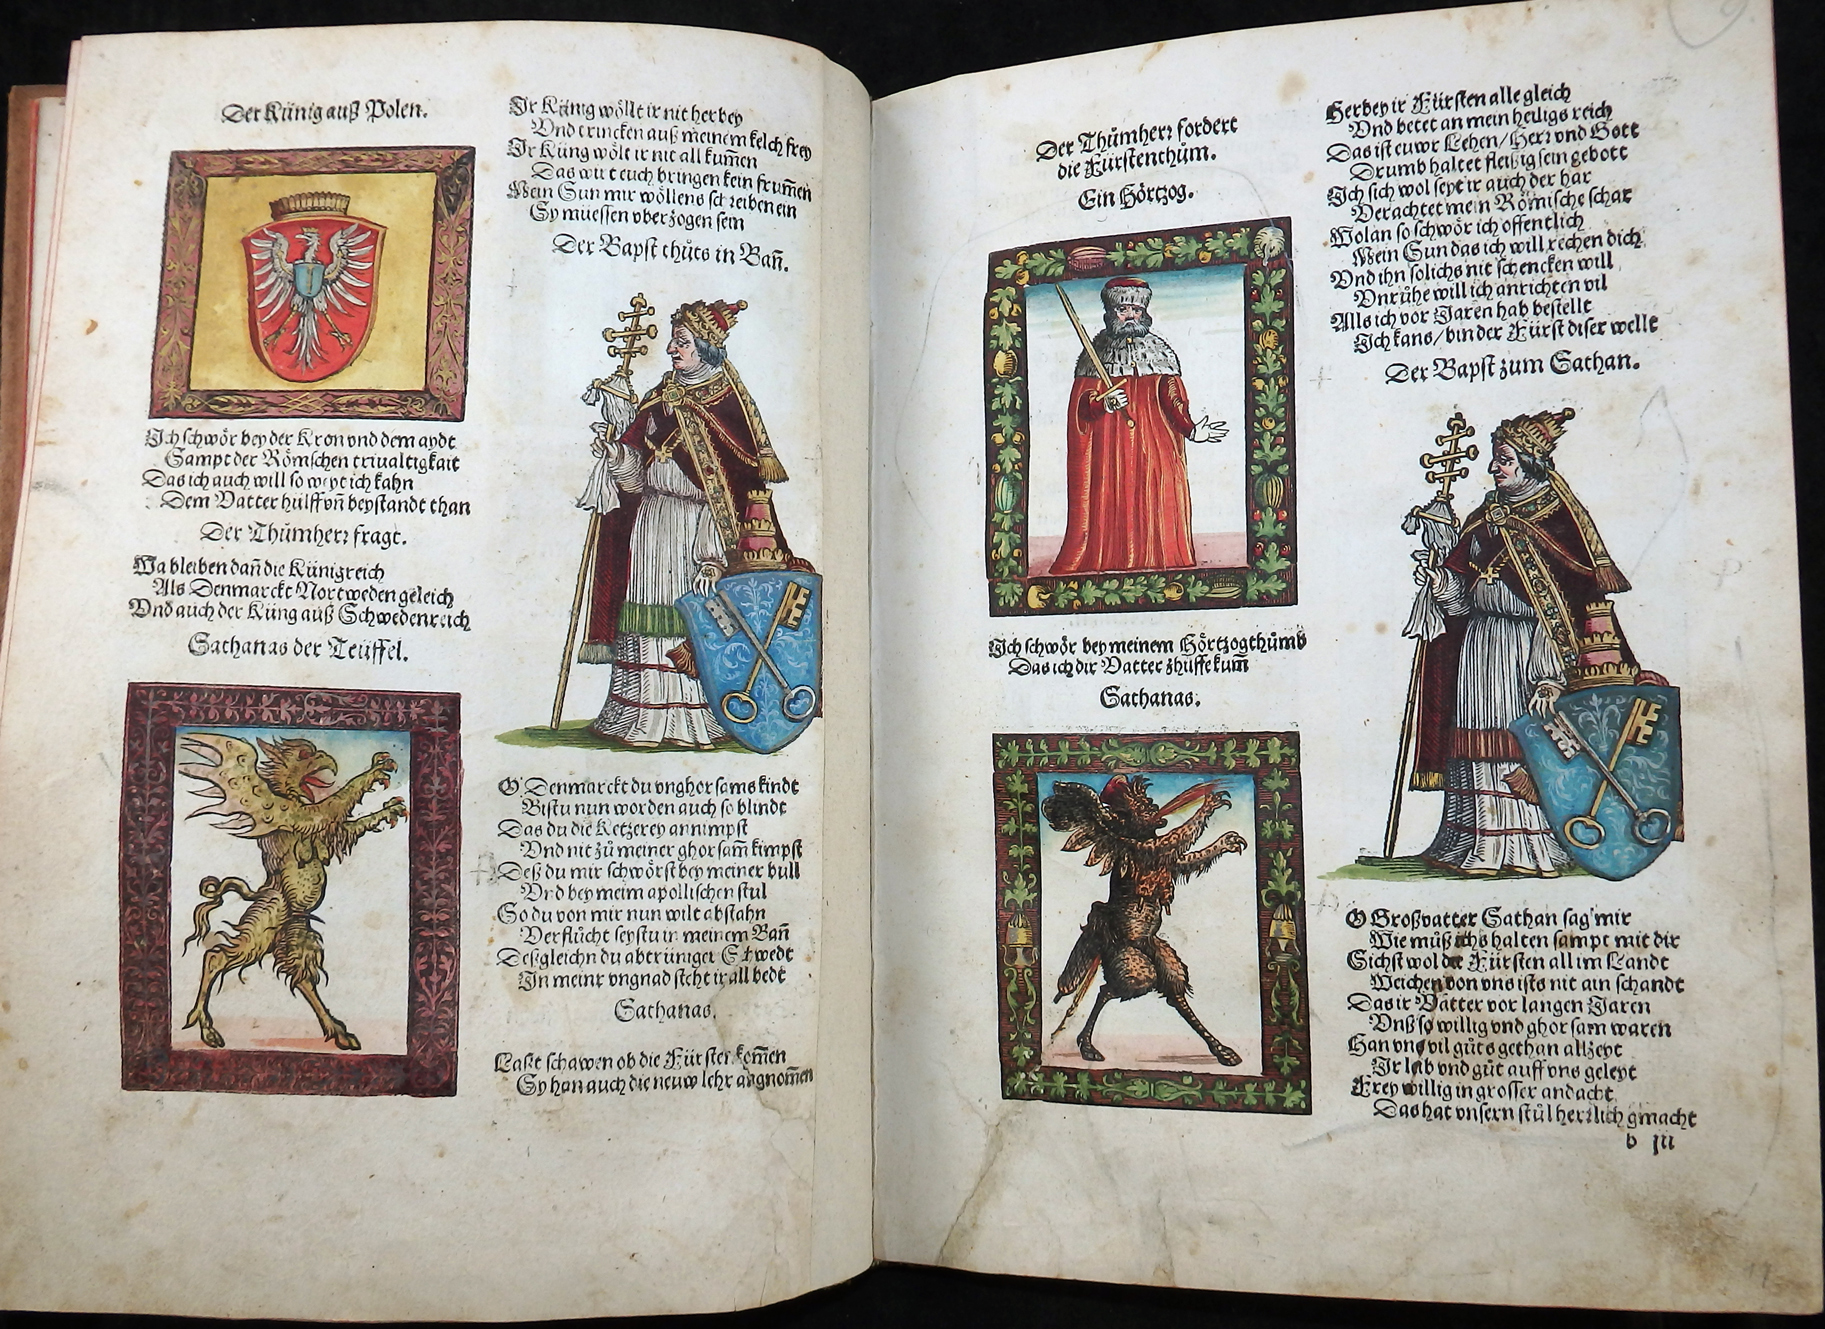 Der Künig auß Polen.
Ich schwör bey der Kron vnd dem aydt
Sampt der Römschen triualtigkait
Das ich auch will so weyt ich kahn
Dem Vatter hülff vn̄ beystandt than
Der Thůmherr fragt.
Wa bleiben dañ die Künigreich
Als Denmarckt Nortweden geleich
Vnd auch der Küng auß Schwedenreich
Sathanas der Teüffel.
Ir Künig wöllt ir nit her bey
Vnd trincken auß meinem kelch frey
Ir Küng wölt ir nit all kum̄en
Das wirt euch bringen kein frum̄en
Mein Sun mir wöllens schreiben ein
Sy müessen vberzogen sein
Der Bapst thůts in Bañ.
O Denmarckt du vnghorsams kindt
Bistu nun worden auch so blindt
Das du die Ketzerey annimpst
Vnd nit zů meiner ghorsam̄ kimpst
Deß du mir schwörst bey meiner bull
Vnd bey meim apollischen stul
So du von mir nun wilt abstahn
Verflůcht seystu in meinem Bañ
Deßgleichn du abtrüniger Schwedt
In meinr vngnad steht ir all bedt
Sathanas.
Laßt schawen ob die Fürsten kom̄en
Sy han auch die neuw lehr angnom̄en
Der Thůmherr fordert
die Fürstenthům.
Ein Hörtzog.
Ich schwör bey meinem Hörtzogthůmb
Das ich dir Vatter zhülffe kum̄
Sathanas.
Herbey ir Fürsten alle gleich
Vnd betet an mein heiligs reich
Das ist euwr Lehen / Herr vnd Gott
Drumb haltet fleissig sein gebott
Ich sich wol seyt ir auch der har
Verachtet mein Römische schar
Wolan so schwör ich offentlich
Mein Sun das ich will rechen dich
Vnd ihn solichs nit schencken will
Vnrůhe will ich anrichten vil
Alls ich vor Jaren hab bestellt
Ich kans / bin der Fürst diser wellt
Der Bapst zum Sathan.
O Großvatter Sathan sag mir
Wie můß ichs halten sampt mit dir
Sichst wol die Fürsten all im Landt
Weichen von vns ists nit ain schandt
Das ir Vätter vor langen Jaren
Vnß so willig vnd ghorsam waren
Han vns vil gůts gethan allzeyt
Ir leib vnd gůt auff vns geleyt
Frey willig in grosser andacht
Das hat vnsern stůl herrlich gmacht
b iij